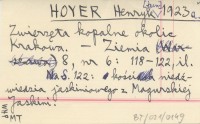 HOYER Henryk 1923a
Zwierzęta kopalne okolic
Krakowa. – Ziemia
8, nr 6: 118-122, il.
Na S. 122: kości niedź-
wiedzia jaskiniowego z Magurskiej
Jaskini.
WHP
MT
BT/021/0149